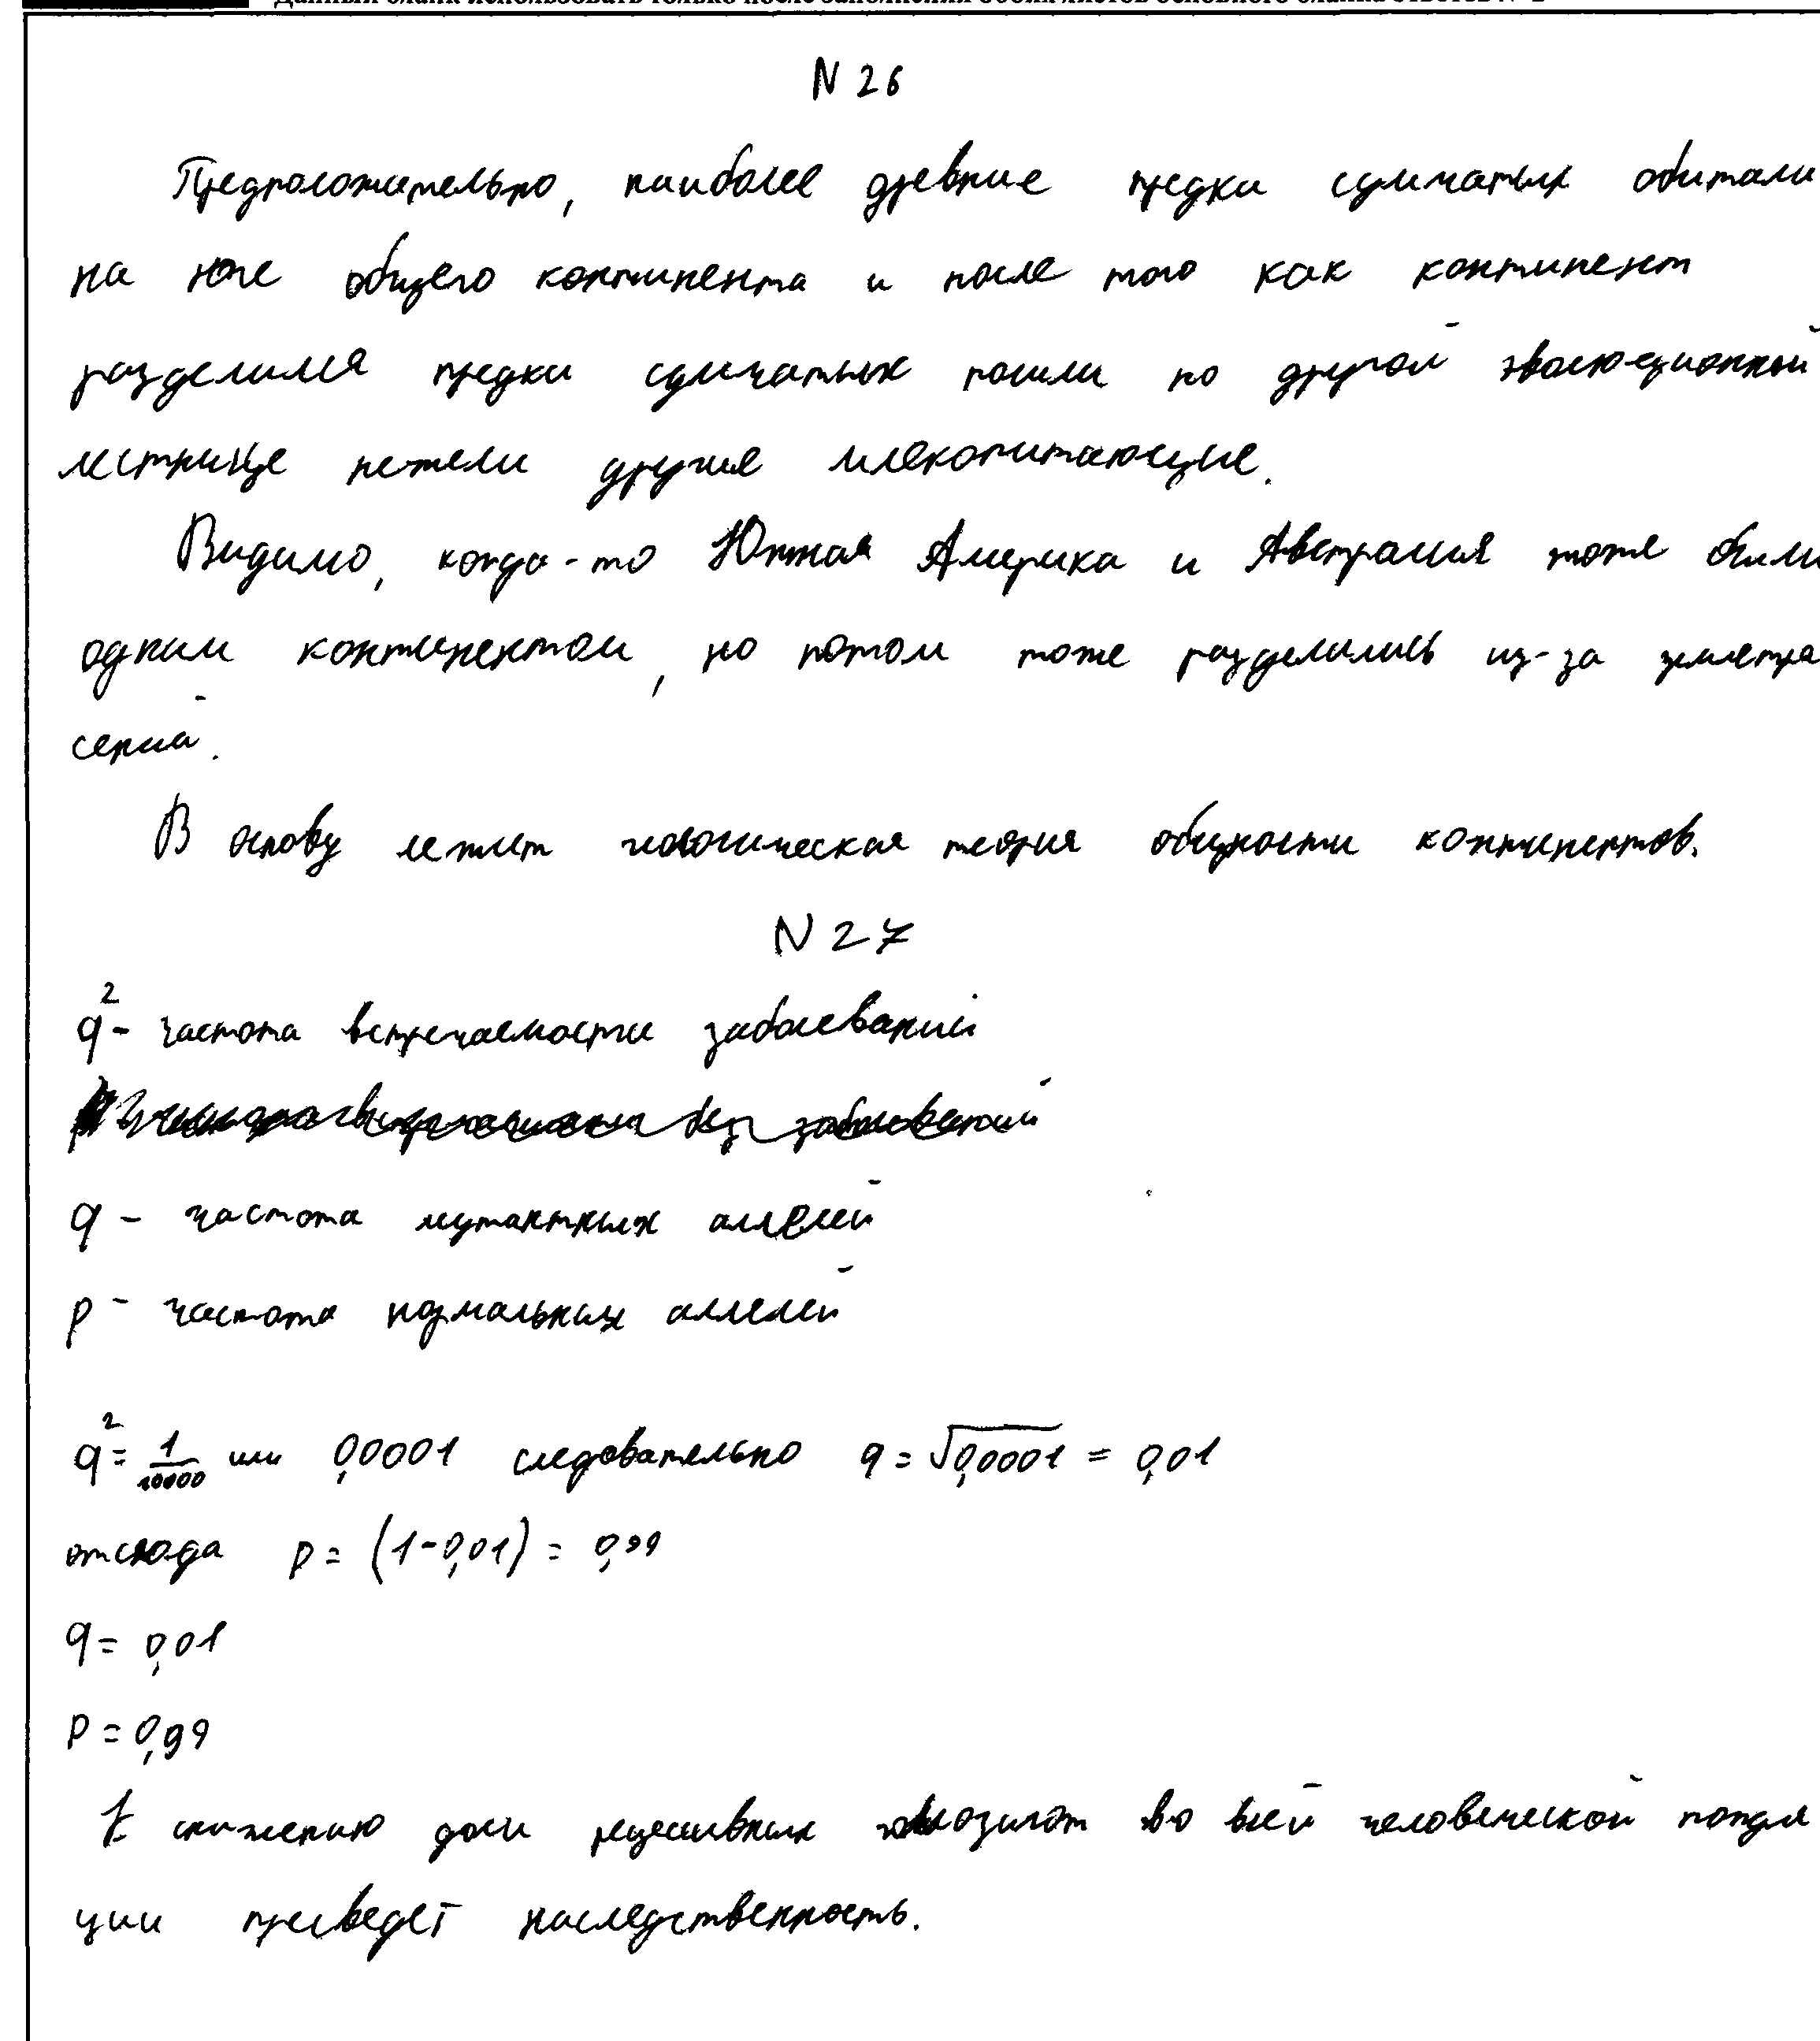 Данный бланк использовать только после заполнения обоих листов основного бланка ответов № 2
N 26
Предположительно, наиболее древние предки сумчатых обитали
на юге общего континента и после того как континент
разделился предки сумчатых пошли по другой эволюционной
лестнице нежели другие млекопитающие.
Видимо, когда-то Южная Америка и Австралия тоже были
одним континентом, но потом тоже разделились из-за землетря
сений.
В основу лежит геологическая теория общности континентов.
N 27
q² - частота встречаемости заболеваний
q - частота мутантных аллелей
p - частота нормальных аллелей
q² = 1/10000 или 0,00001 следовательно q = √0,0001 = 0,01
отсюда p = (1-0,01) = 0,99
q = 0,01
p = 0,99
К снижению доли рецессивных гомозигот во всей человеческой популя
ции приведёт наследственность.